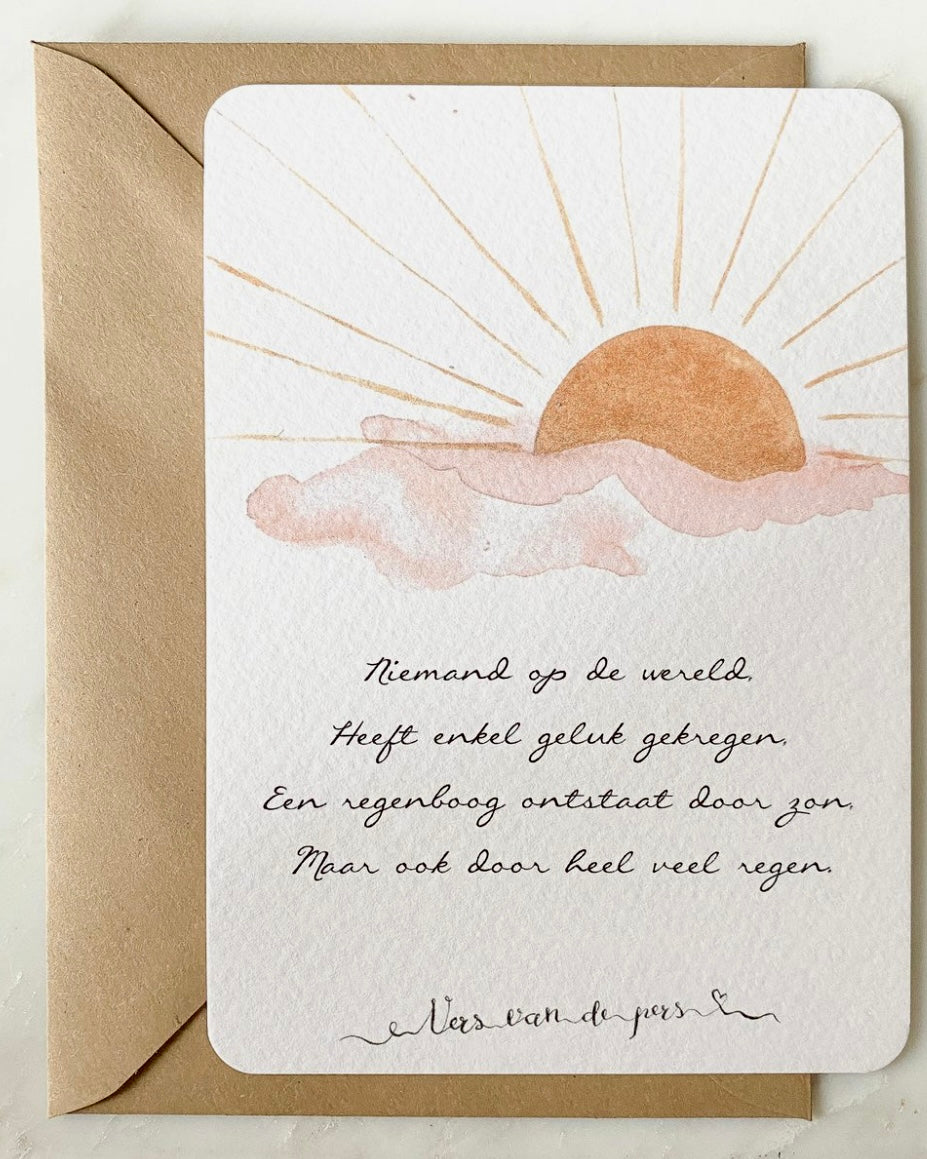 Niemand op de wereld,
Heeft enkel geluk gekregen,
Een regenboog ontstaat door zon,
Maar ook door heel veel regen.
Vers van de pers